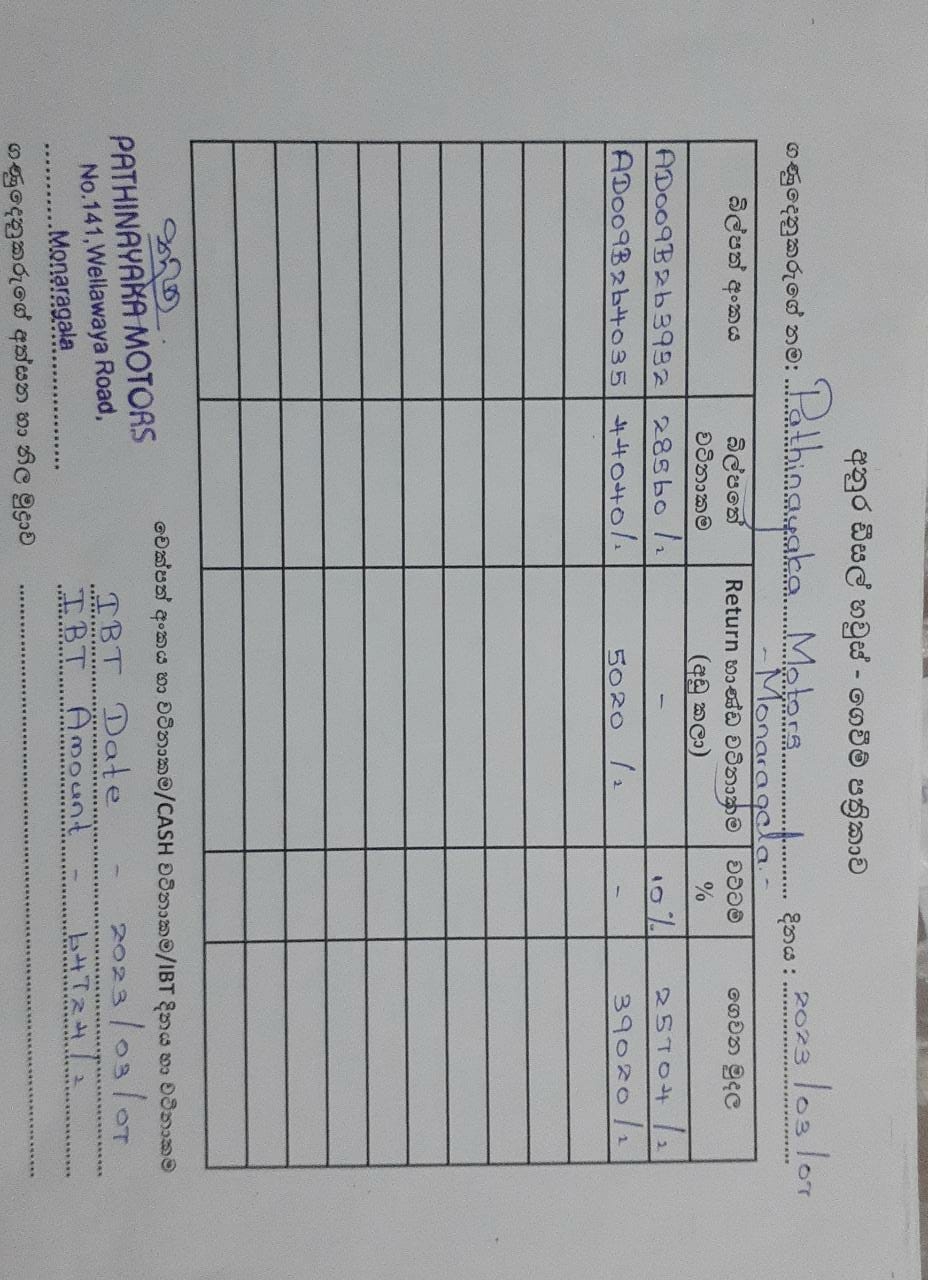 අනුර ඩීසල් හවුස් - ගෙවීම් පත්‍රිකාව
ගණුදෙනුකරුගේ නම: Pathinayaka Motors දිනය : 2023/03/07
- Monaragala. -
බිල්පත් අංකය බිල්පතේ වටිනාකම Return භාණ්ඩ වටිනාකම (අඩු කලා) වට්ටම් % ගෙවන මුදල
AD009B263952 28560/= - 10% 25704/=
AD009B264035 44040/= 5020/= - 39020/=
චෙක්පත් අංකය හා වටිනාකම/CASH වටිනාකම/IBT දිනය හා වටිනාකම
PATHINAYAKA MOTORS
No.141,Wellawaya Road,
Monaragala
IBT Date - 2023/03/07
IBT Amount - 64724/=
ගණුදෙනුකරුගේ අත්සන හා නිල මුද්‍රාව